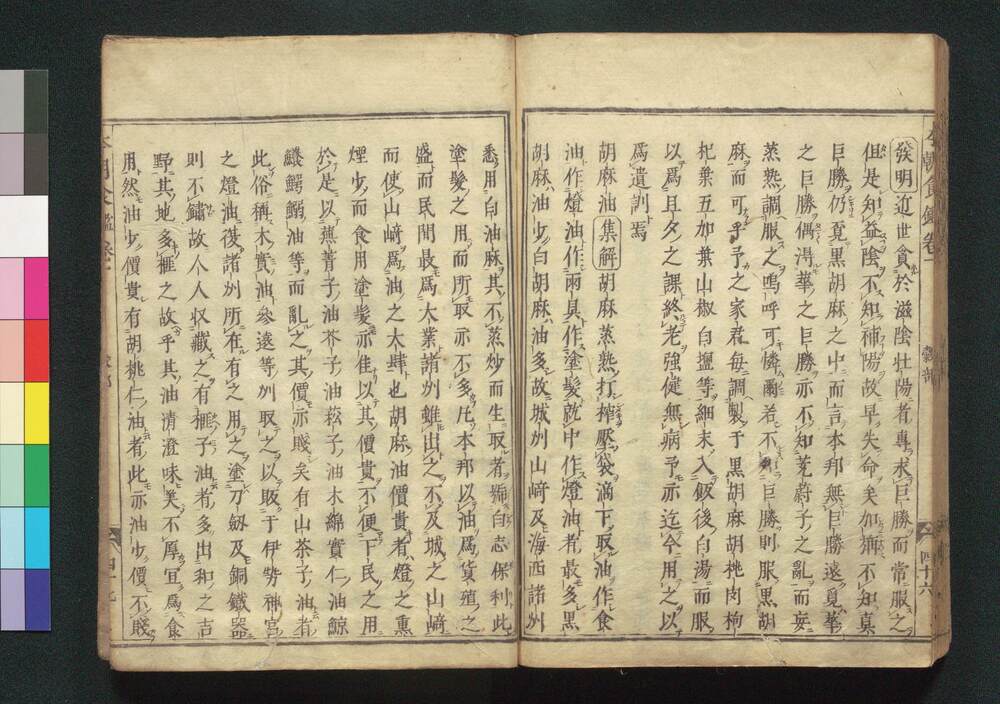 本朝食鑑卷一 穀部 四十六
發明近世貪於滋陰壮陽者專求巨勝而常服之
但是知益陰不知補陽故早失命矣加㫋不知真
巨勝仍覔黒胡麻之中而言本邦無巨勝遠覓華
之巨勝偶得華之巨勝亦不知茺蔚子之亂而妄
蒸熟調服之嗚呼可憐爾若不得巨勝則服黒胡
麻而可乎予之家君毎調製于黒胡麻胡桃肉枸
杞葉五加葉山椒白鹽等細末入飯後白湯而服
以爲旦夕之課終老強健無病予亦迄今用之以
爲遺訓焉
胡麻油集解胡麻蒸熟打搾壓袋滴下取油作食
油作燈油作雨具作塗髮就中作燈油者最多黒
胡麻油少白胡麻油多故城州山﨑及海西諸州
悉用白油麻其不蒸炒而生取者稱白志保利此
塗髮之用而所取亦不多凡本邦以油爲貨殖之
盛而民間最爲大業諸州雖出之不及城之山﨑
而使山﨑爲油之大肆也胡麻油價貴者燈之熏
煙少而食用塗髮亦佳以其價貴不便下民之用
於是以蕪菁子油芥子油菘子油木綿實仁油鯨
鱶鰐鰯油等而亂之其價亦賤矣有山茶子油者
此俗稱木實油參遠等州取之以販于伊勢神宮
之燈油後諸州所在有之用之塗刀劔及銅鐵器
則不鏽故人人収藏之有榧子油者多出和之吉
野其地多榧之故乎其油清澄味美不厚宜爲食
用然油少價貴有胡桃仁油者此亦油少價不賤